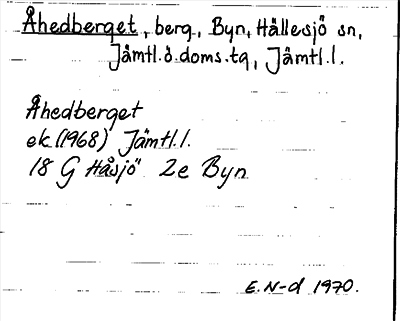 Åhedberget, berg, Byn, Hällesjö sn,
Jämtl.ö.doms.tg, Jämtl.l.
Åhedberget
ek (1968) Jämtl.l.
18 G Håsjö 2e Byn
E.N-d 1970.